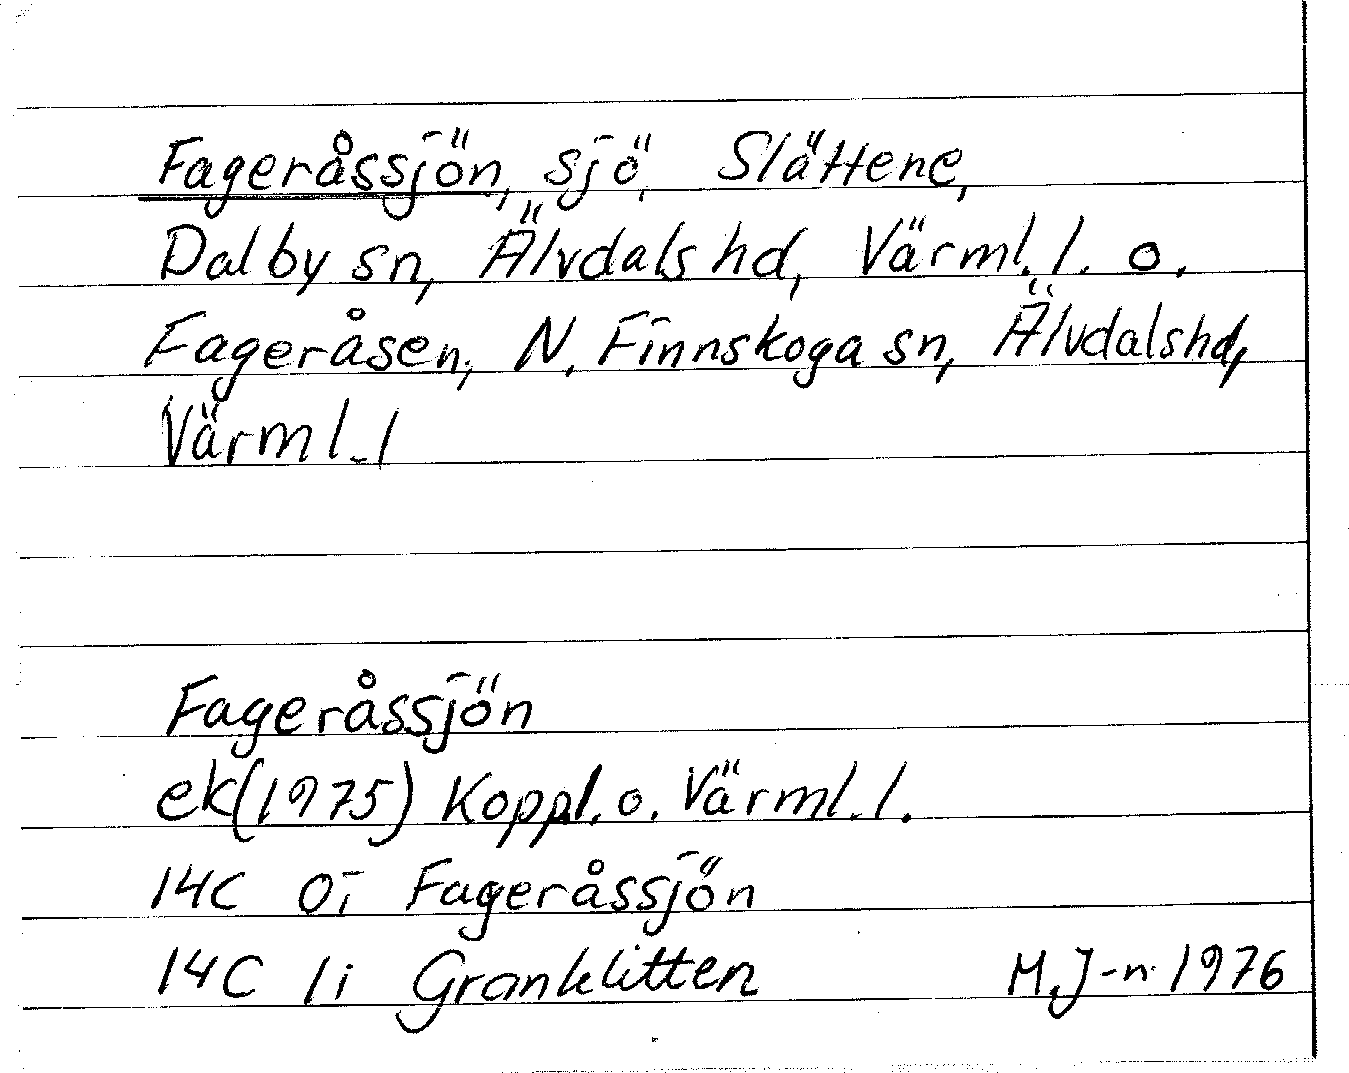 Fageråssjön, sjö, Slättene,
Dalby sn, Älvdals hd, Värml. l. o.
Fageråsen, N. Finnskoga sn, Älvdals hd,
Värml. l
Fageråssjön
ek(1975) Koppl. o. Värml. l.
14C 0i Fageråssjön
14C 1i Granklitten M.J-n 1976